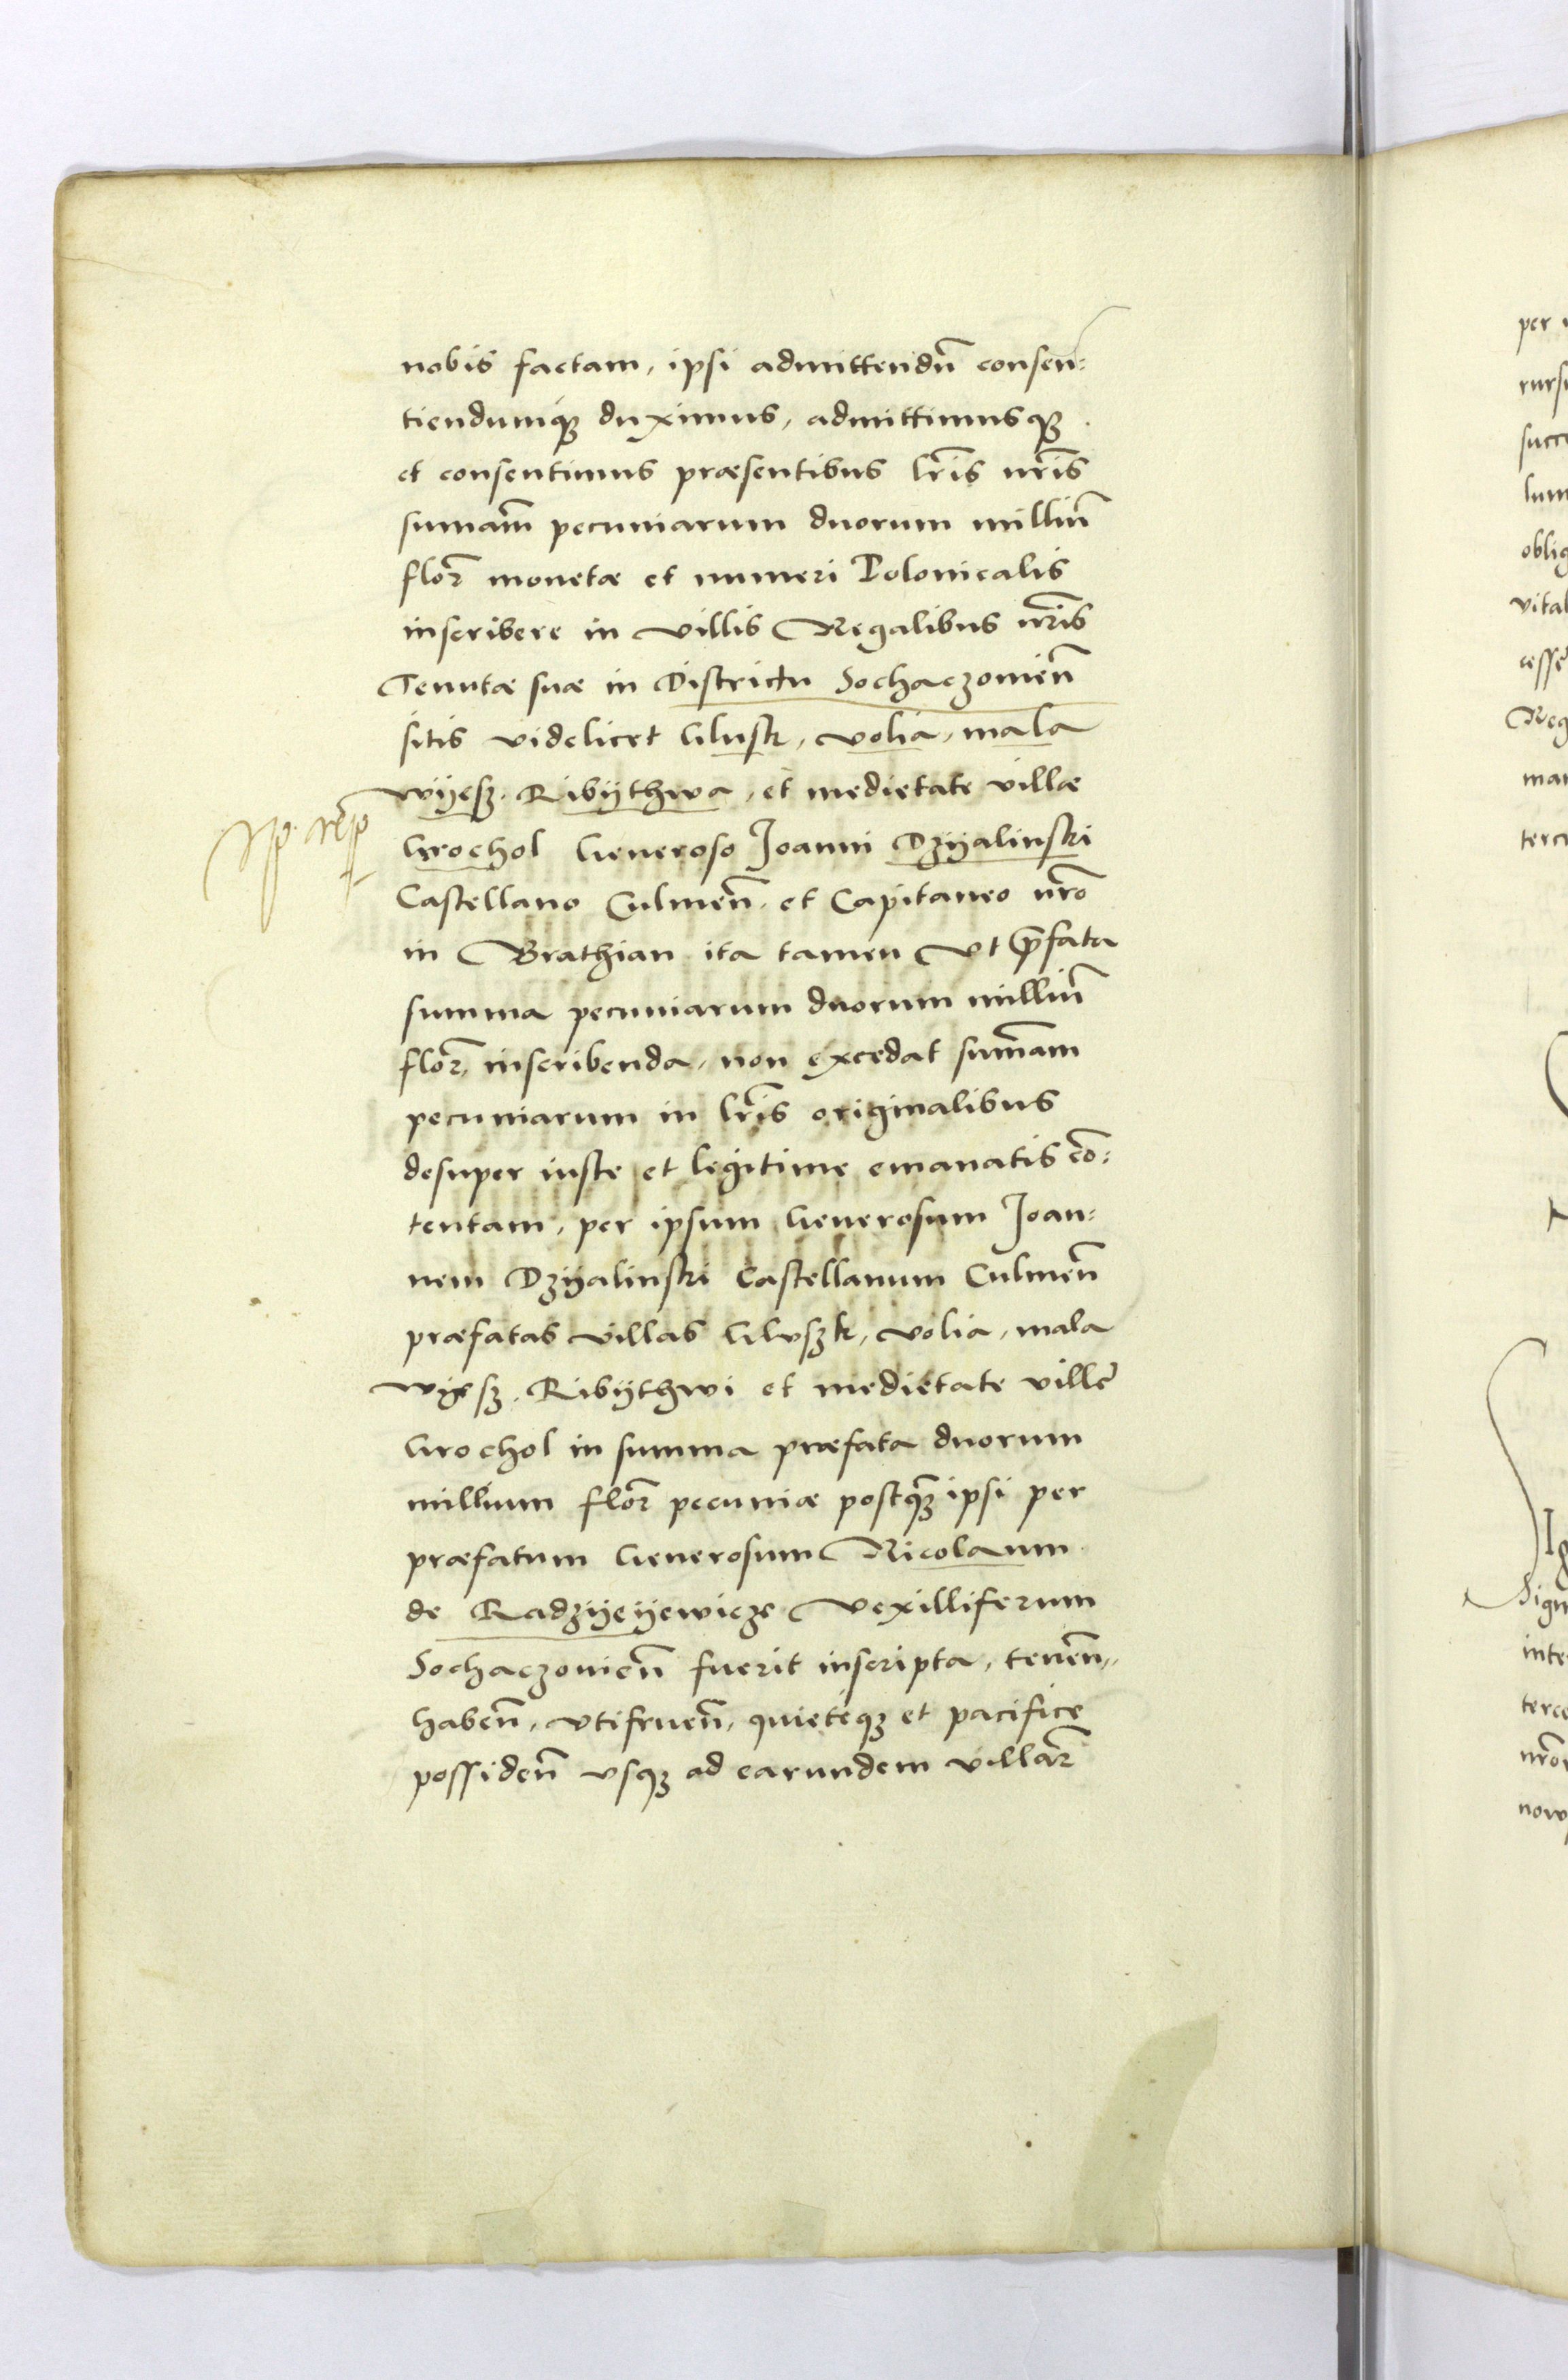 nobis factam, ipsi admittendũ consen:
tiendumq̃ duximus, admittimusq̃
et consentimus præsentibus lr̃is nr̃is
sumam̃ pecuniarum duorum milliũ
flor̃ monetæ et numeri Polonicalis
inscribere in villis Regalibus nr̃is
Tenutæ suæ in Districtu Sochaczovień
sitis videlicet Glusk, volia, mala
wÿesz. Ribÿthwa, et medietate villæ
Grochol Generoso Joanni Dzÿalinski
Castellano Culmeñ. et Capitaneo nr̃o
in Brathian ita tamen Vt p̃fata
summa pecuniarum duorum milliũ
flor̃, inscribenda, non excedat sum̃am
pecuniarum in lr̃is originalibus
desuper iuste et legitime emanatis cõ:
tentam, per ipsum Generosum Joan:
nem Dzÿalinski Castellanum Culmeñ
præfatas villas Gluszk, volia, mala
wÿesz. Ribÿthwi et medietate ville
Grochol in summa præfata duorum
millium flor̃ pecuniæ postq̃ ipsi per
præfatum Generosum Nicolaum
de Radzÿeÿewicze Vexilliferum
Sochaczovieñ fuerit inscripta, teneñ,
habeñ, vtifrueñ, quieteq̃ et pacifice
possideñ vsq̃ ad earundem villar̃
per
rurs
succ
lum
oblig
vital
cesse
Reg
terci
Sign
inte
terce
nr̃o
now